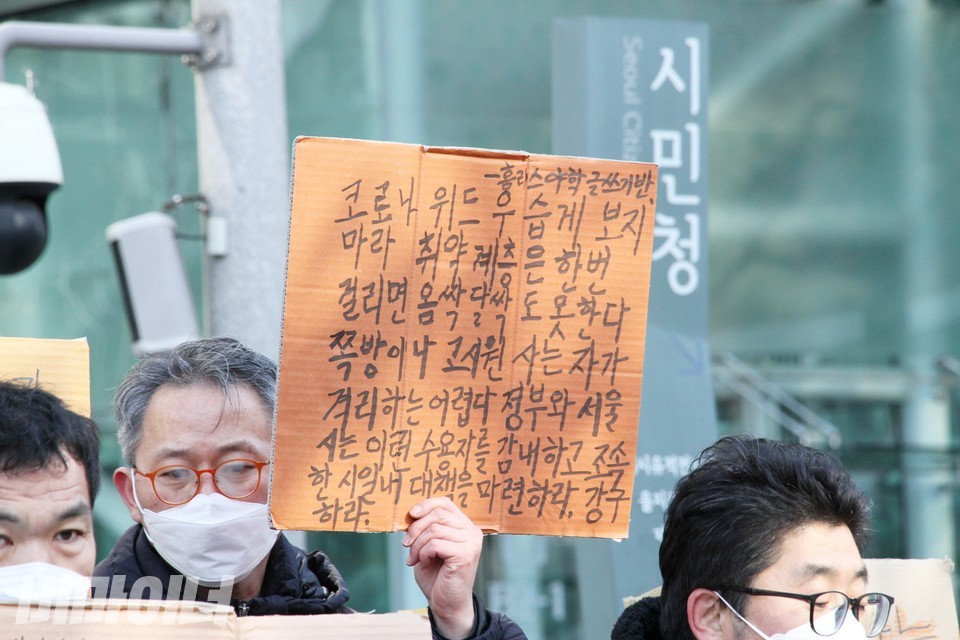 시민청
Seoul Citi
-홈리스야학 글쓰기반,
코로나 위드 우습게 보지
마라 취약계층은 한번
걸리면 옴싹달싹 도못한다
쪽방이나 고시원 사는 자가
격리하는 어렵다 정부와 서울
시는 이러 수요자를 감내하고 조속
한 시일내 대책을 마련하라, 강구
하라.
비마이너